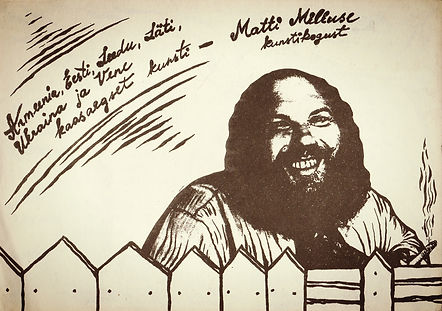 Armeenia, Eesti, Leedu, Läti,
Ukraina ja Vene
kaasaegset kunsti – Matti Milliuse
kunstikogust